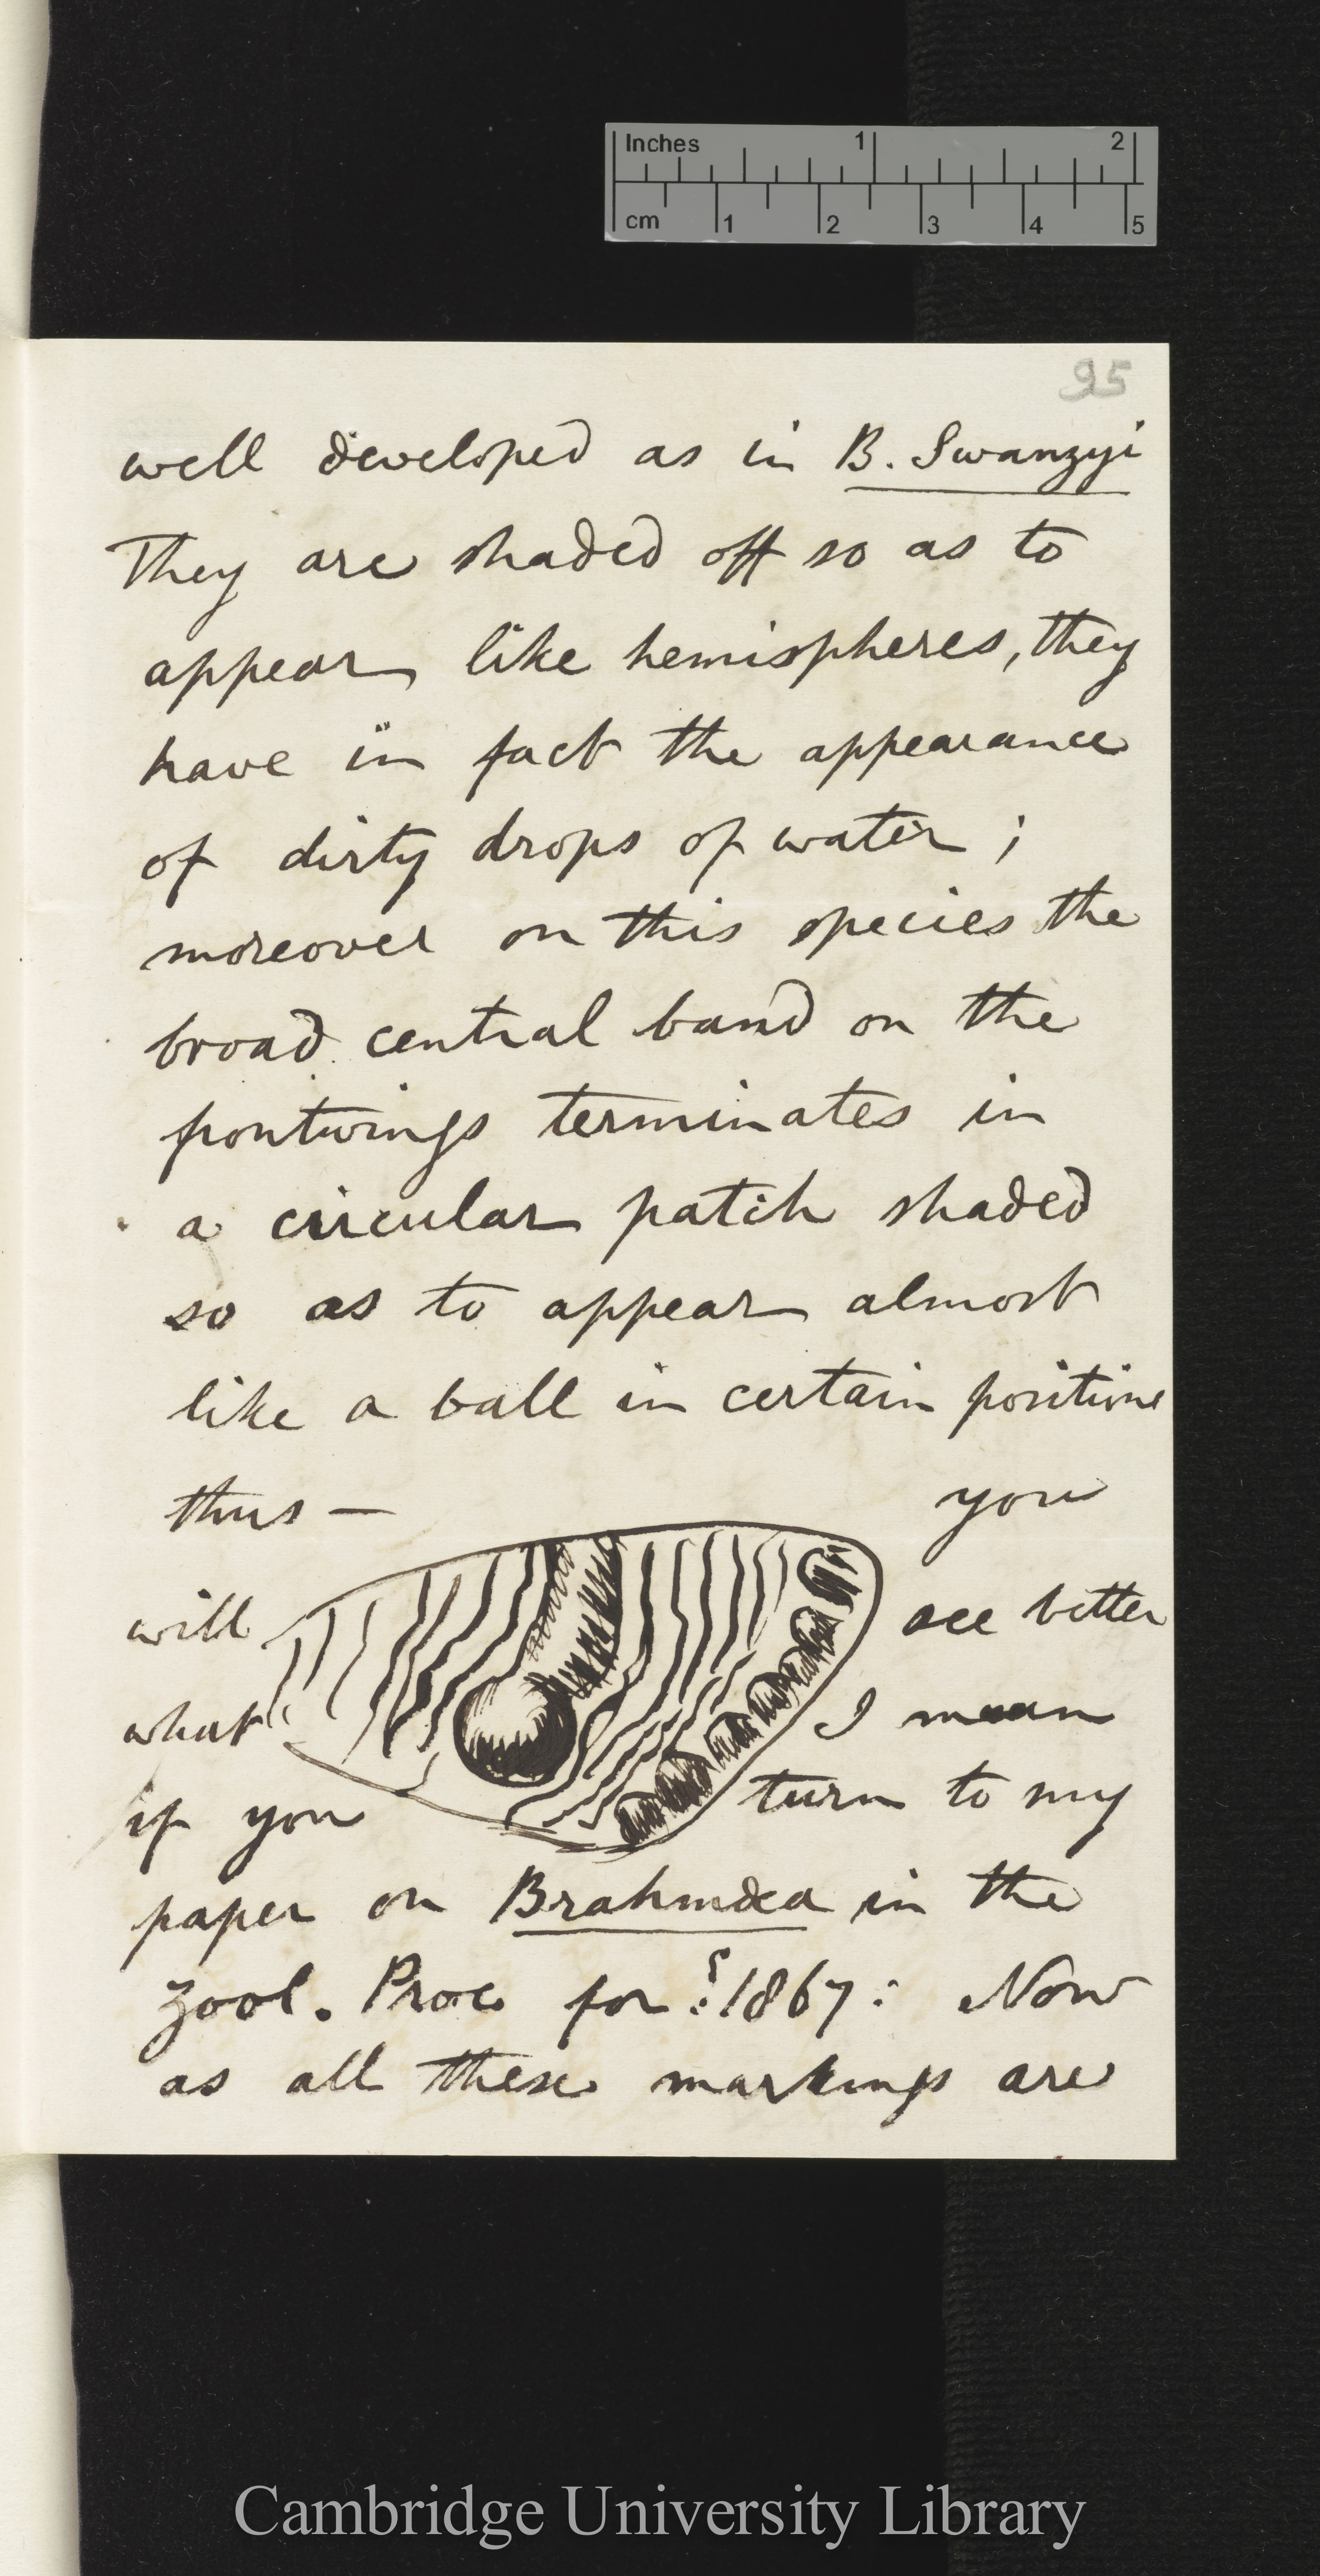 Inches 1 2
cm 1 2 3 4 5
95
well developed as in B. Swanzyi
They are shaded off so as to
appear like hemispheres, they
have in fact the appearance
of dirty drops of water ;
moreover on this species the
broad central band on the
frontwings terminates in
a circular patch shaded
so as to appear almost
like a ball in certain positions
thus — you
will see better
what I mean
if you turn to my
paper on Brahmæa in the
Zool. Proc for 1867: Now
as all these markings are
Cambridge University Library